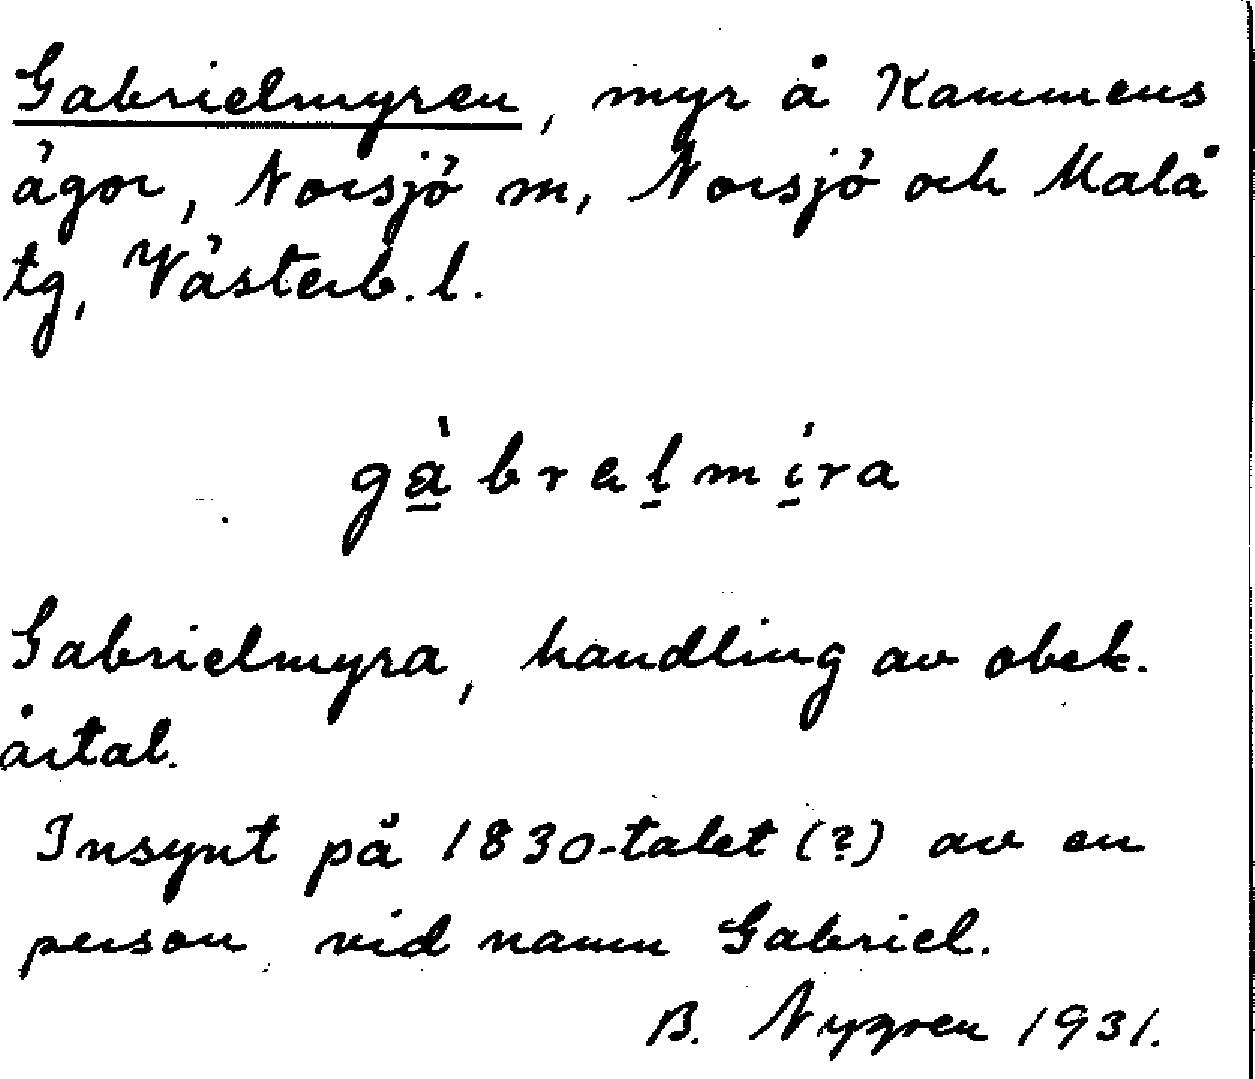 Gabrielmyren, myr å Kammens
ägor, Norsjö sn, Norsjö och Malå
tg, Västerb. l.
gàbrelmíra
Gabrielmyra, handling av obek.
årtal.
Insynt på 1830-talet (?) av en
person vid namn Gabriel.
B. Nygren 1931.